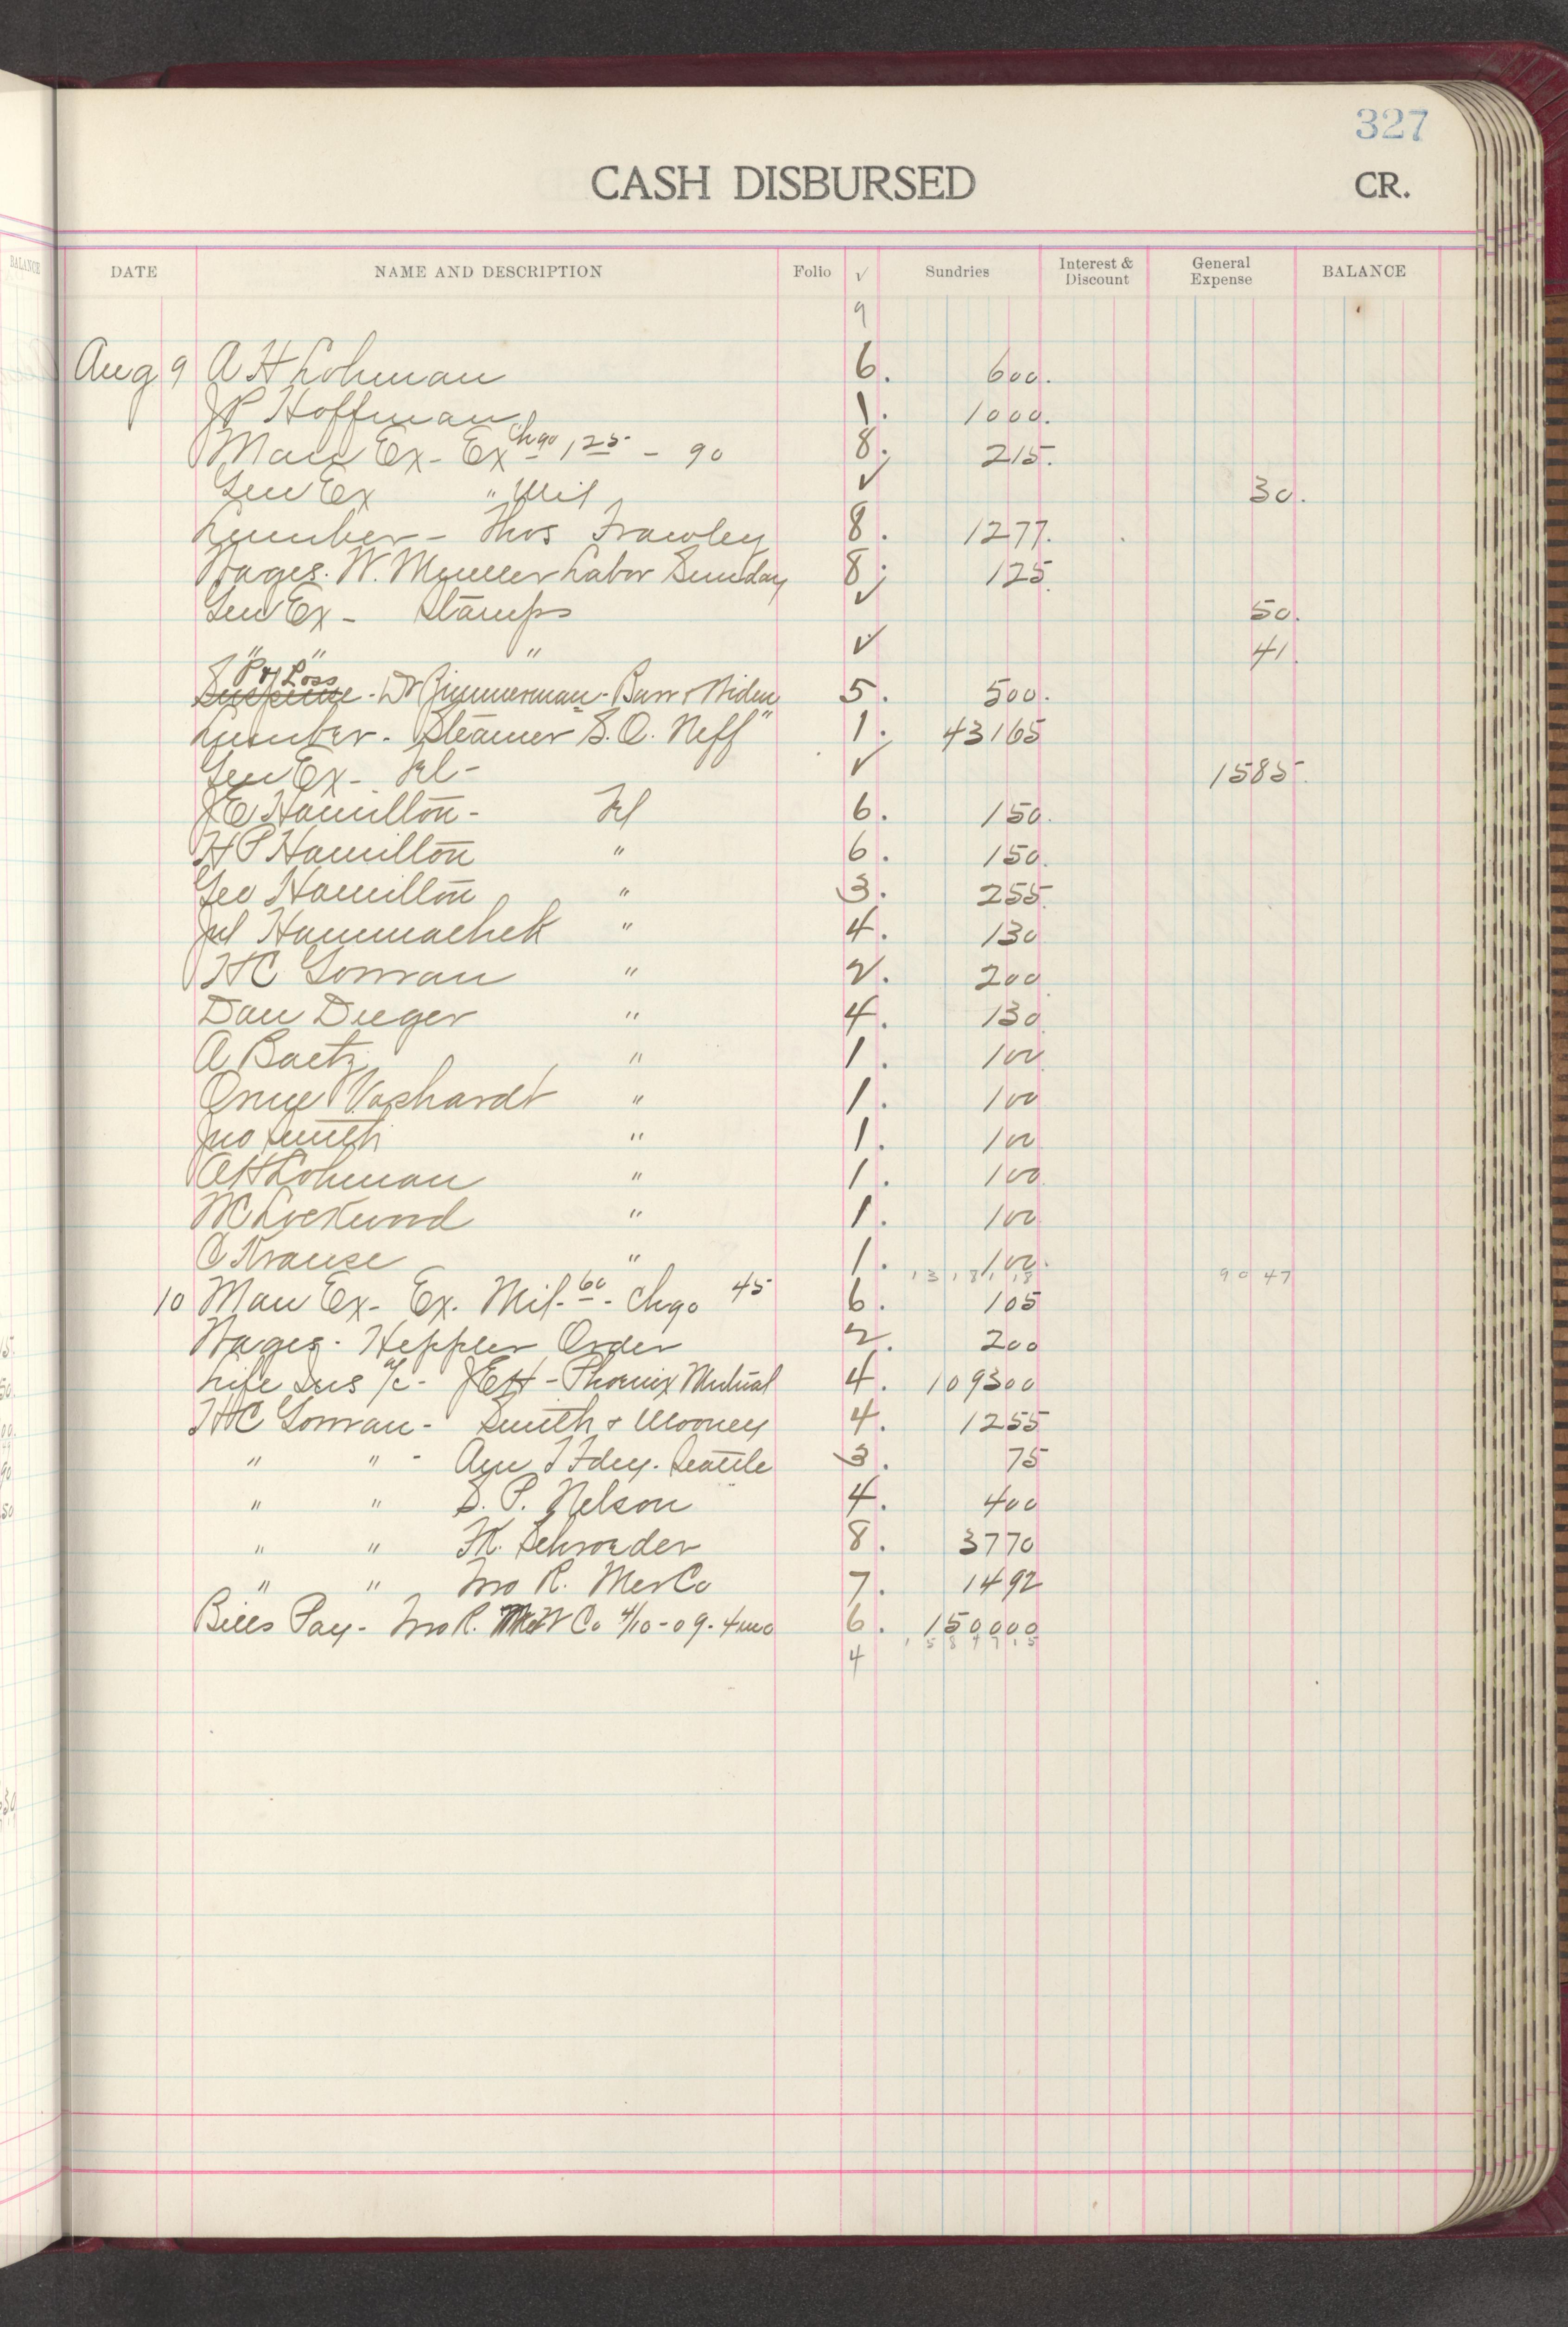 327
CASH DISBURSED CR.
DATE NAME AND DESCRIPTION Folio √ Sundries Interest & Discount General Expense BALANCE
9
Aug 9 A H Lohman 6. 600.
JP Hoffman 1. 1000.
Man Ex - Ex Chgo 1 25 - 90 8. 215.
Gen Ex " Mil ✓ 30.
Lumber - Thos Frawley 8. 1277.
Wages. W. Mueller Labor Sunday 8. 125.
Gen Ex - Stamps ✓ 50.
" " " ✓ 41.
P & Loss
Suspense - Dr Zimmerman - Barr & Widen 5. 500.
Lumber - Steamer "S. O. Neff" 1. 43165
Gen Ex - Tel - ✓ 1585.
J E Hamilton - Tel 6. 150.
H P Hamilton " 6. 150.
Geo Hamilton " 3. 255.
Jul Hammachek " 4. 130
H C Gorman " 2. 200
Dan Deeger " 4. 130
A Baetz " 1. 100
Vashardt " 1. 100
Jno Smith " 1. 100
A H Lohman " 1. 100.
W C Lockwood " 1. 100
C Krause " 1. 100.
1 3 1 8 1 1 8 9 0 4 7
10 Man Ex - Ex. Mil - 60 - Chgo 45 6. 105
Wages - Heppler Order 2. 200
Life Ins a/c - J E H - Phoenix Mutual 4. 109300
H C Gorman - Smith & Mooney 4. 1255
" " - Am T Fdry. Seattle 3. 75
" " S. P. Nelson 4. 400
" " Schroeder 8. 3770
" " Two R. Mer Co 7. 1492
Bills Pay - Two R. Co 4/10-09-4mo 6. 150000
1 5 8 4 7 1 5
4